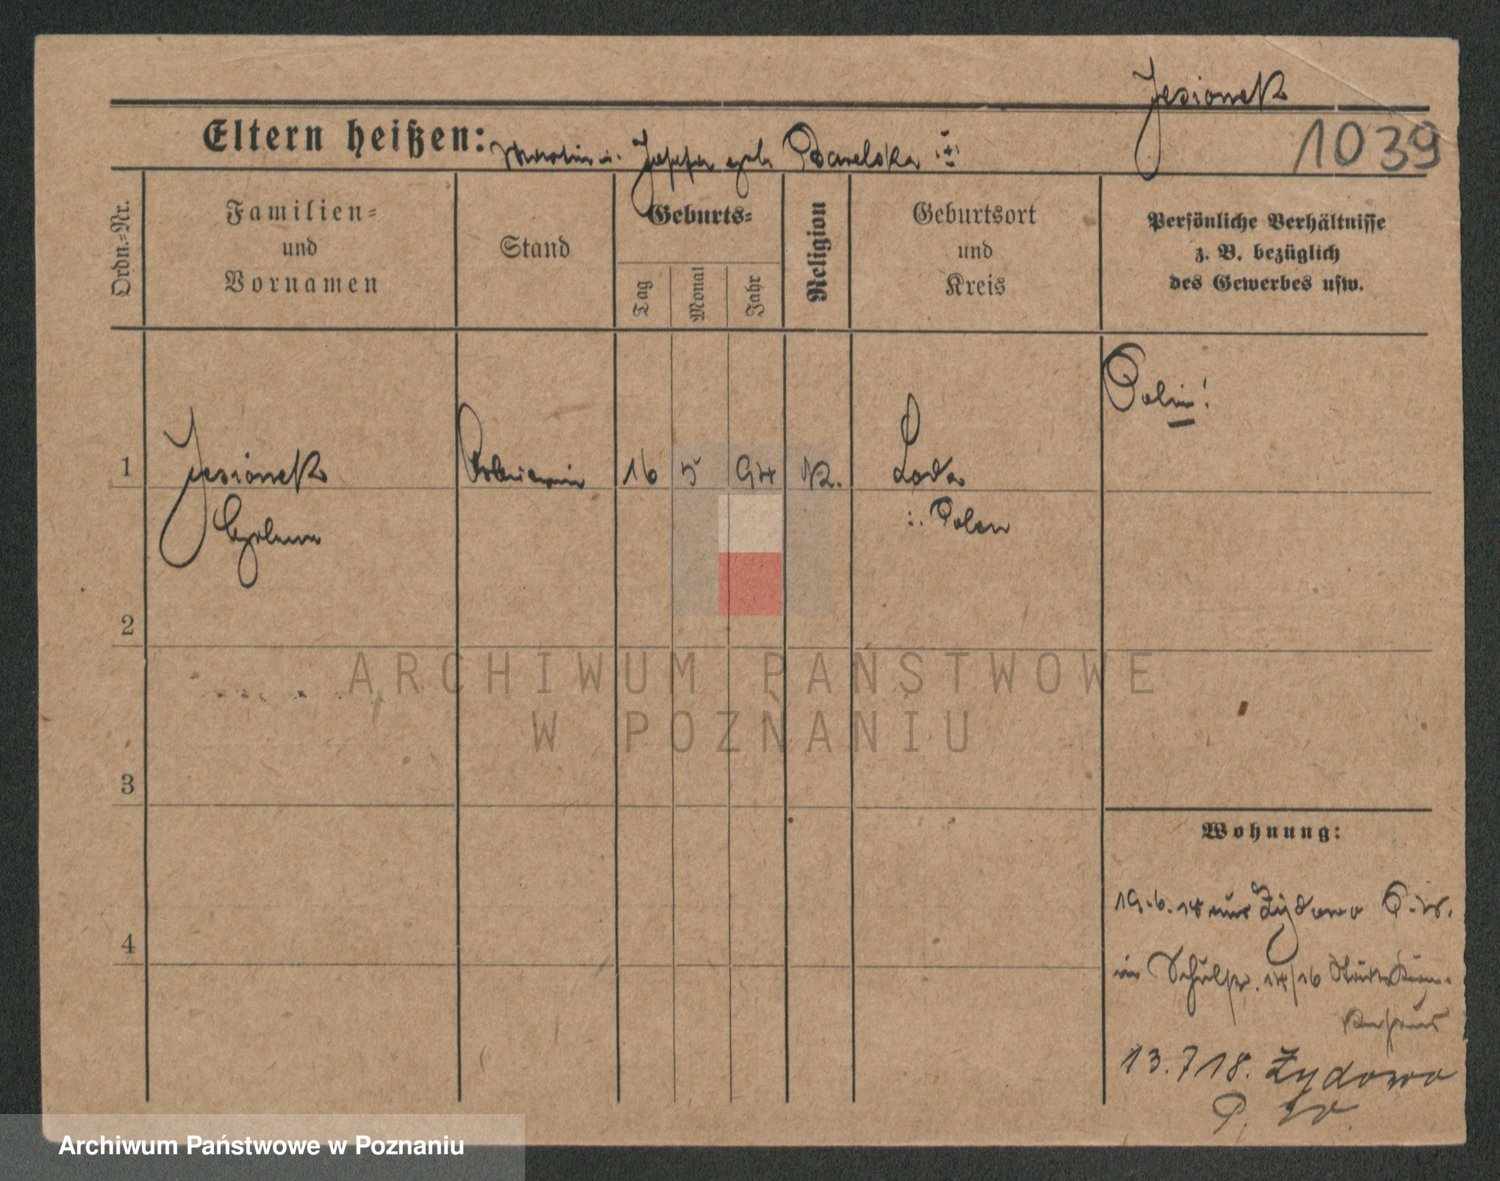 Jesionek
1039
Eltern heißen: Martin u. Josefa geb Pawelska
Ordn.-Nr.
Familien-
und
Vornamen
Stand
Geburts-
Tag
Monat
Jahr
Religion
Geburtsort
und
Kreis
Persönliche Verhältnisse
z. B. bezüglich
des Gewerbes usw.
Polin!
1 Jesionek Arbeiterin 16 5 94 K.
Polen
2
3
4
Wohnung:
19.6.18 aus Żydowo
in Schulstr. 14/16
13.7 18. Żydowo
ARCHIWUM PAŃSTWOWE
W POZNANIU
Archiwum Państwowe w Poznaniu